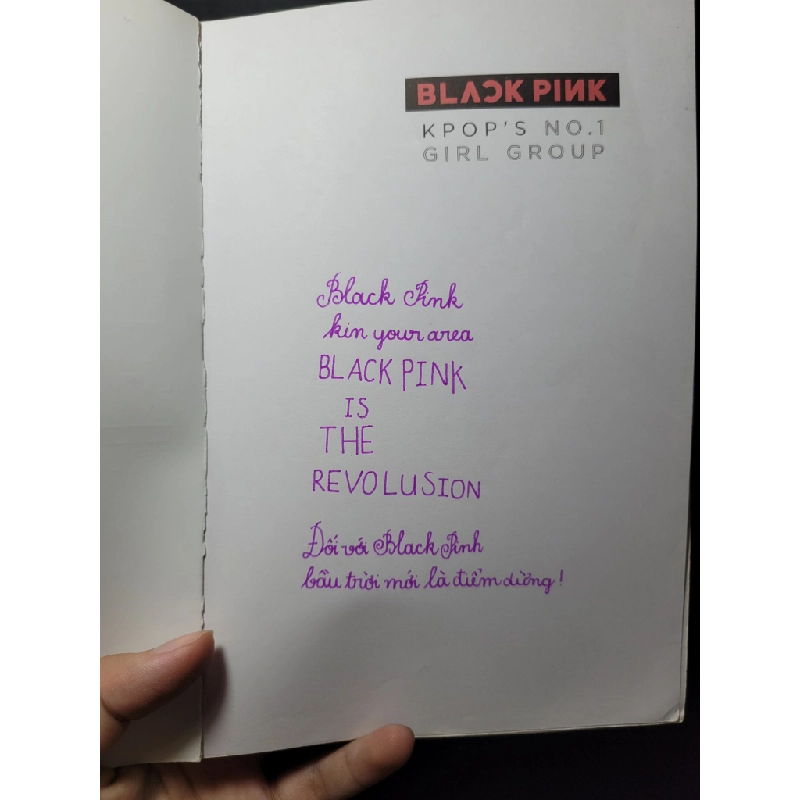 BLACKPINK
KPOP'S NO.1
GIRL GROUP
Black Pink
kin your area
BLACK PINK
IS
THE
REVOLUSION
Đối với Black Pinh
bầu trời mới là điểm dừng!